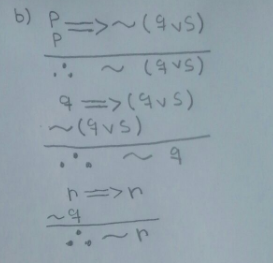 b) P => ~(q v s)
P
∴ ~ (q v s)
q => (q v s)
~(q v s)
∴ ~ q
r => r
~q
∴ ~ r